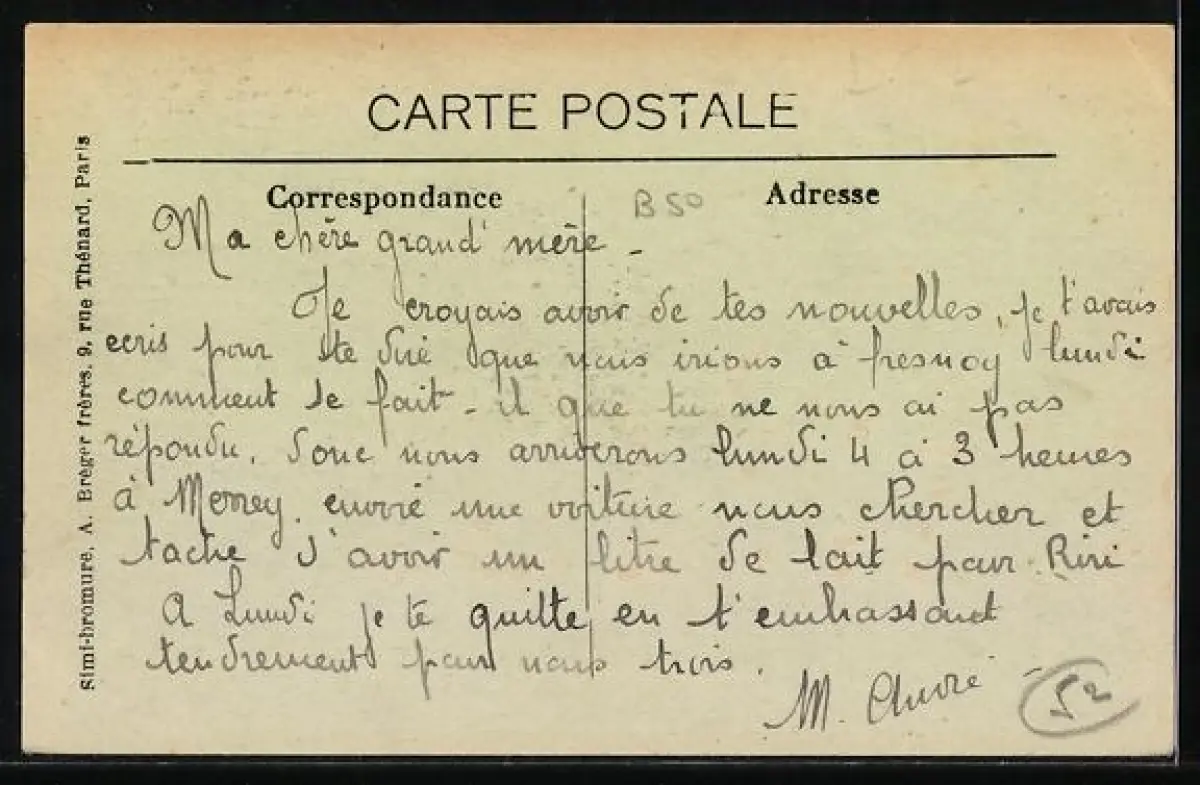 CARTE POSTALE
Correspondance
Adresse
B 50
Ma chère grand' mère -
Je croyais avoir de tes nouvelles, je t'avais
ecris pour te dire que nous irions à fresnoy lundi
comment se fait-il que tu ne nous ai pas
répondu. Donc nous arriverons lundi 4 à 3 heures
à Merrey. envoie une voiture nous chercher et
tache d'avoir un litre de lait pour Riri
A Lundi je te quitte en t'embrassant
tendrement pour nous trois.
M.
52
Simi-bromure. A. Breger frères. 9. rue Thénard. Paris